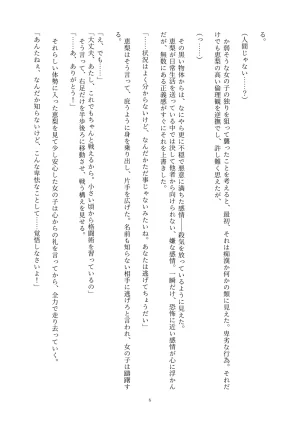 る。
(人間じゃない……？)
か弱そうな女の子の独りを狙って襲ったことを考えると、最初、それは痴漢か何かの類に見えた。卑劣な行為。それだ
けでも恵梨の高い倫理観を逆撫でし、許し難く思えたが、
(っ……)
その黒い物体からは、なにやら更に不穏で悪意に満ちた感情――殺気を放っているように見えた。
恵梨が日常生活を送っている中では決して他者から向けられない、嫌な感情。一瞬だけ、恐怖に近い感情が心に浮かん
だが、無数にある正義感がすぐにそれを上書きした。
「……状況はよく分からないけど、なんだかただ事じゃないみたいね。あなたは逃げてちょうだい」
恵梨はそう言って、庇うように身を乗り出し、片手を広げた。名前も知らない相手に逃げろと言われ、女の子は躊躇す
る。
「え、でも……」
「大丈夫、あたし、これでもちゃんと戦えるから。小さい頃から格闘術を習っているの」
そう言って、右足だけを半歩後ろに移動させ、戦う構えを見せる。
「あ、ありがとう！」
それらしい体勢に入った恵梨を見て少し安心した女の子は心からの礼を言ってから、全力で走り去っていく。
「あんたねぇ、なんだか知らないけど、こんな卑怯なことして――覚悟しなさいよ！」
5